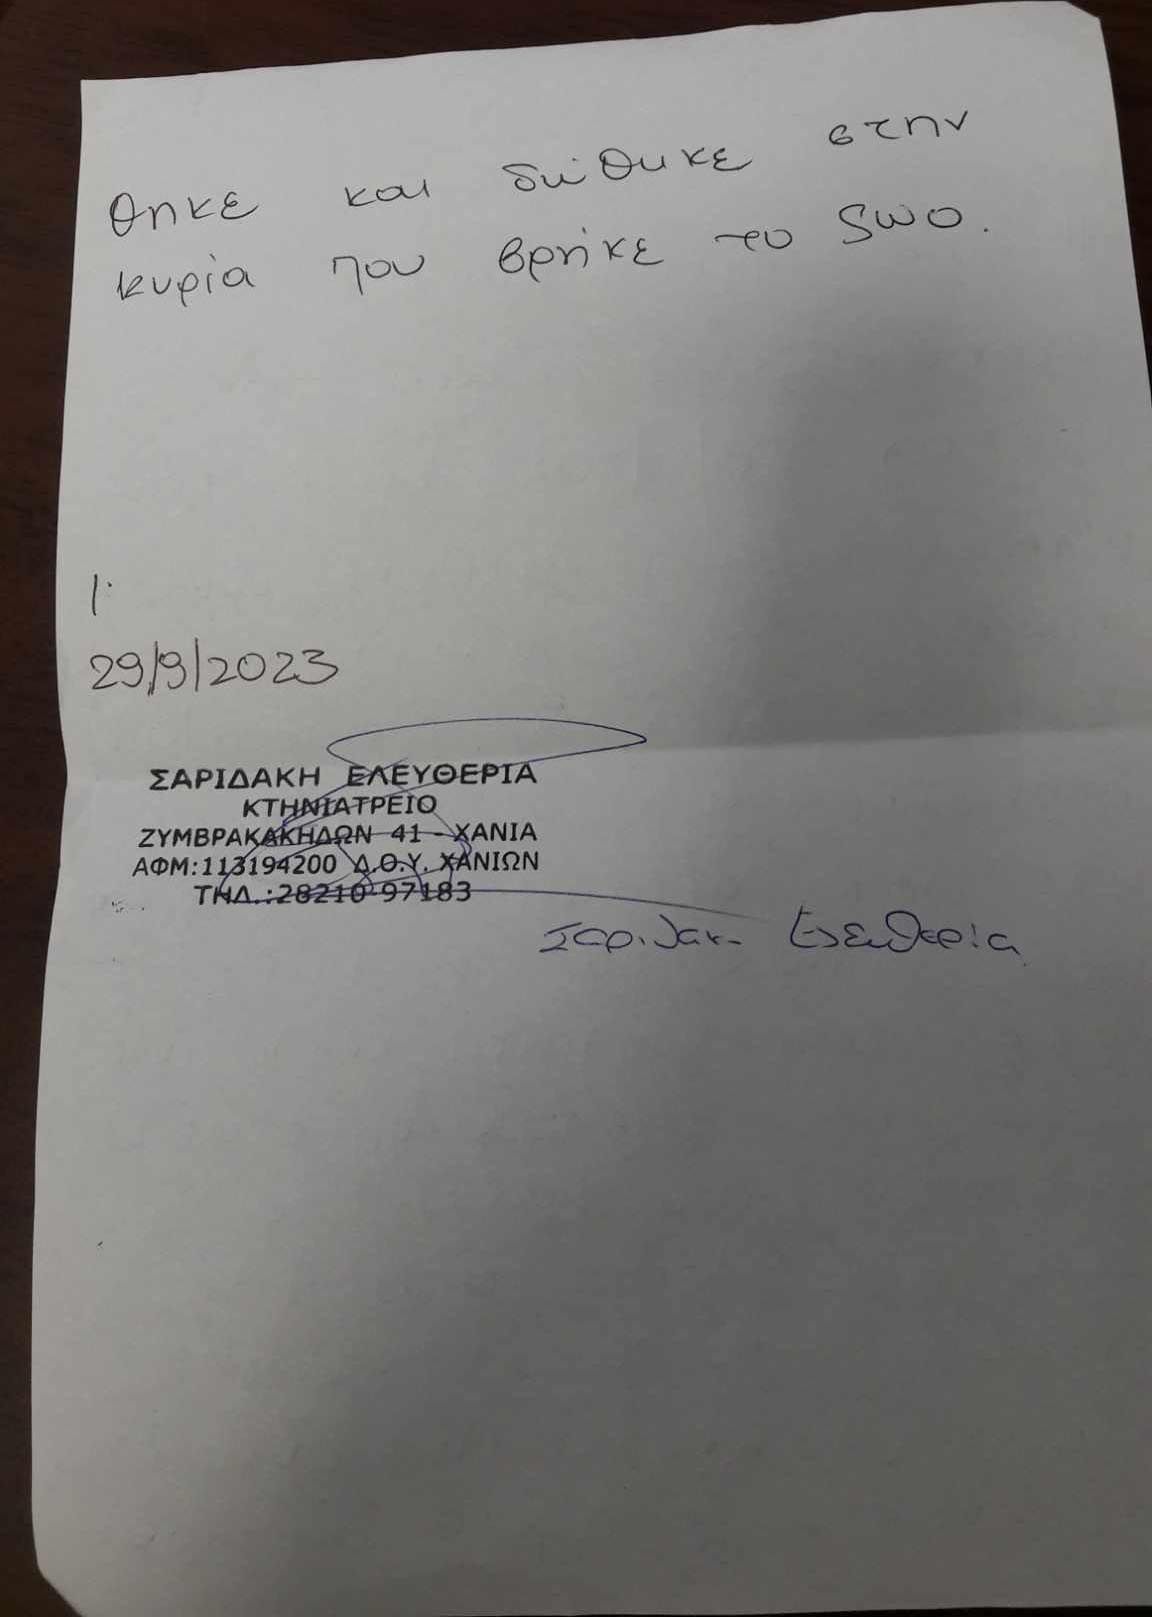 θηκε και δώθηκε στην
κυρία που βρήκε το ζωο.
29/9/2023
ΣΑΡΙΔΑΚΗ ΕΛΕΥΘΕΡΙΑ
ΚΤΗΝΙΑΤΡΕΙΟ
ΖΥΜΒΡΑΚΑΚΗΔΩΝ 41 - ΧΑΝΙΑ
ΑΦΜ:113194200 Δ.Ο.Υ. ΧΑΝΙΩΝ
ΤΗΛ.:28210-97183
Σαριδακη Ελευθερία